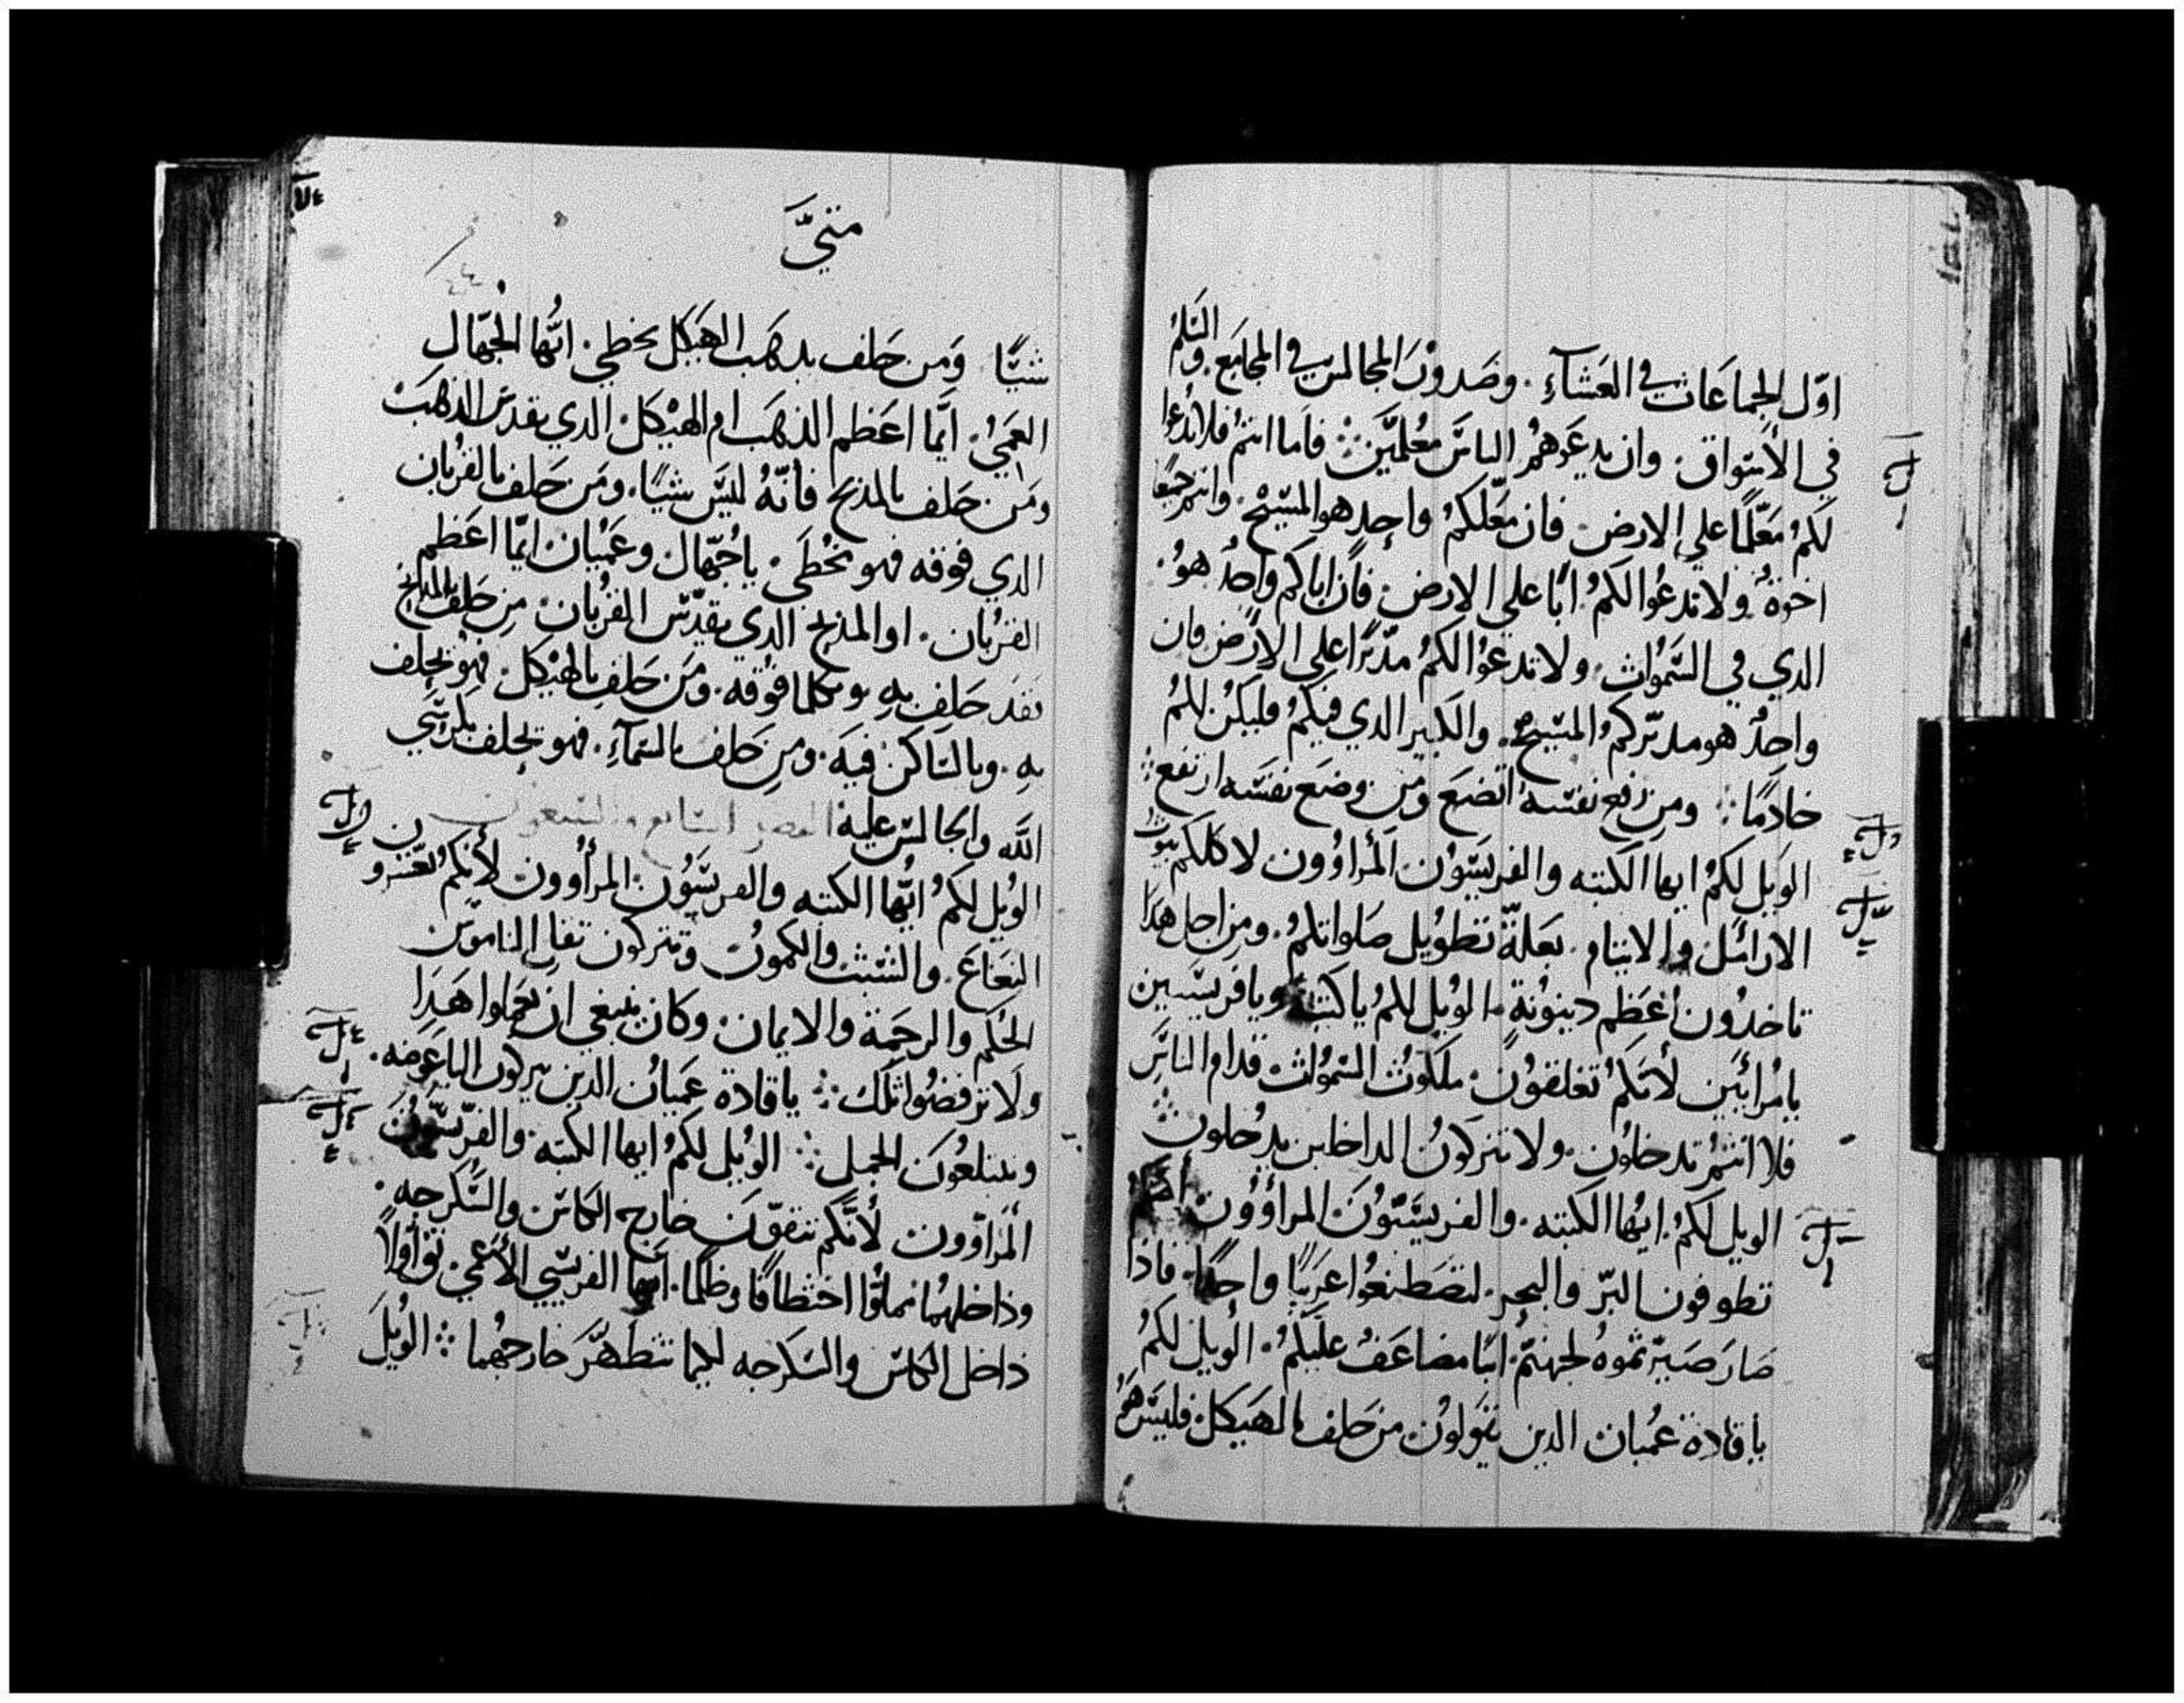 اوّل الجماعات في العشآء. وصدور المجالس في المجامع. والسّلم
في الأسواق. وان يدعوهم الناس معُلّمين ܀ فاما انتم فلا تدُعوا
لكم معَلّمًا علي الارض. فان معَلّمكم واحد هو المسيّح. وانتم جميعًا
اخوة. ولا تدعُوا لكم ابًا علي الارض. فان اباكم واحدٌ هوُ.
الدي في السّموُات. ولا تدعُوا لكم مدّبرًا علي الارض فان
واحدٌ هو مدبّركم المسّيح. والكبير الدي فيكم فليكن لكم
خادمًا ܀ ومن رفع نفسه اتضع ومن وضع نفسه ارتفع ܀
الويل لكم ايها الكتبه والفريسّيون المرُاؤون لاكلكم بيوت
الارامل والايتام. بعلة تطويل صلواتكم. ومن اجل هدا
تاخدُون أعظم دينونة. الويل لكم يا كتبة ويا فريسّيين
يا مُرائيين لأنكم تغلقون. ملكوت السّموات قدام الناس
فلا انتم تدخلون. ولا تتركون الداخلين يدخلون ܀
الويل لكم ايها الكتبه. والفريسّيون المراؤون انكم
تطوفون البرّ والبحر. لتصَطنعُوا غريبًا واحدًا. فاذا
صار صيّرتموه لجهنم. ابنًا مضاعَف عليكم. الويل لكم
يا قادة عُميان الدين تقولون من حلف بالهيكل فليس هو
متيّ
شيًا ومن حلف بدهب الهيكل يخطي. ايها الجهّال
العمي. ايّما اعظم الذهب ام الهيكل الدي يقدس الدهب
ومن حلف بالمذبح فأنّه ليسّ شيًا. ومن حلف بالقربان
الدي فوقه فهو يخُطي. يا جُهّال وعميان ايّما اعظم
القربان. او المذبح الدي يقدّس القربان. من حلف بالمذبح
فقد حلف به وبكلما فوقه. ومن حلف بالهيكل فهو يحلف
به. وبالساكن فيه. ومن حلف بالسّمآء. فهو يحلف بكرسي
الله والجالس عليه الفصل السابع والتسعون
الويل لكم ايها الكتبه والفريسّيون المرأؤون لأنكم تعشرون
النعناع. والشبث والكمون وتتركون ثقال الناموس
الحكم والرحمة والايمان. وكان ينبغي ان تعملوا هدا
ولا ترفضوا تلك ܀ يا قادة عميان الدين يتركون الباعوضه.
ويبتلعُون الجمل ܀ الويل لكم ايها الكتبه والفريّسيّون
المرَاؤون لأنكم تنقون خارج الكاس والسّكرجه.
وداخلهما مملوًا اختطافًا وظلمًا. ايها الفريسّي الأعمي. نق أولاً
داخل الكاس والسّكرجه ليما تتطهّر خارجهُما ܀ الويل